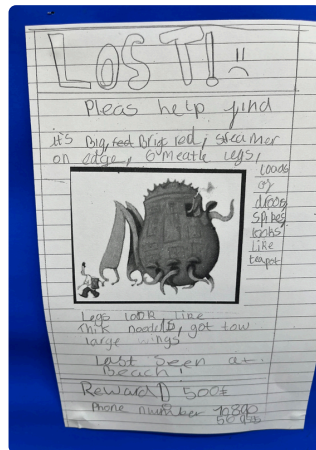 LOST! :(
Pleas help find
it's Big, feet Brigt red, steamer
on edge, 6 meatle legs,
Loads
of
doors
spikes
looks
like
teapot
Legs look like
thick noodles, got tow
large wings
Last seen at
Beach!
Reward 500£
Phone number